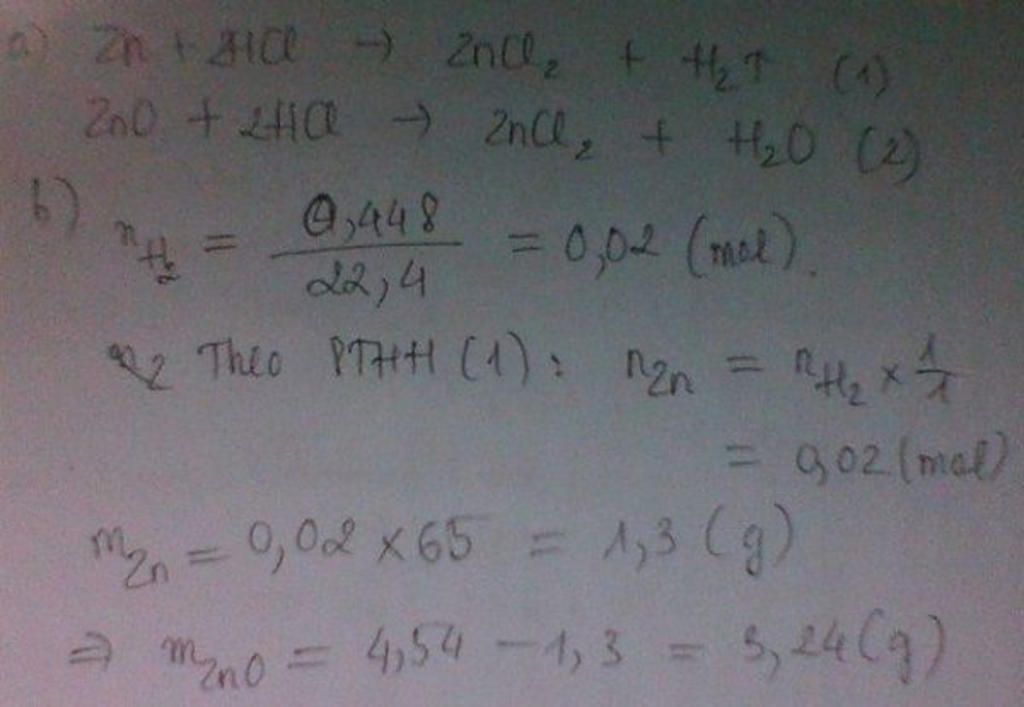 a) Zn + 2HCl → ZnCl₂ + H₂↑ (1)
ZnO + 2HCl → ZnCl₂ + H₂O (2)
b) n_H₂ = 0,448 / 22,4 = 0,02 (mol).
Theo PTHH (1): n_Zn = n_H₂ × 1/1
= 0,02 (mol)
m_Zn = 0,02 × 65 = 1,3 (g)
⇒ m_ZnO = 4,54 - 1,3 = 3,24 (g)